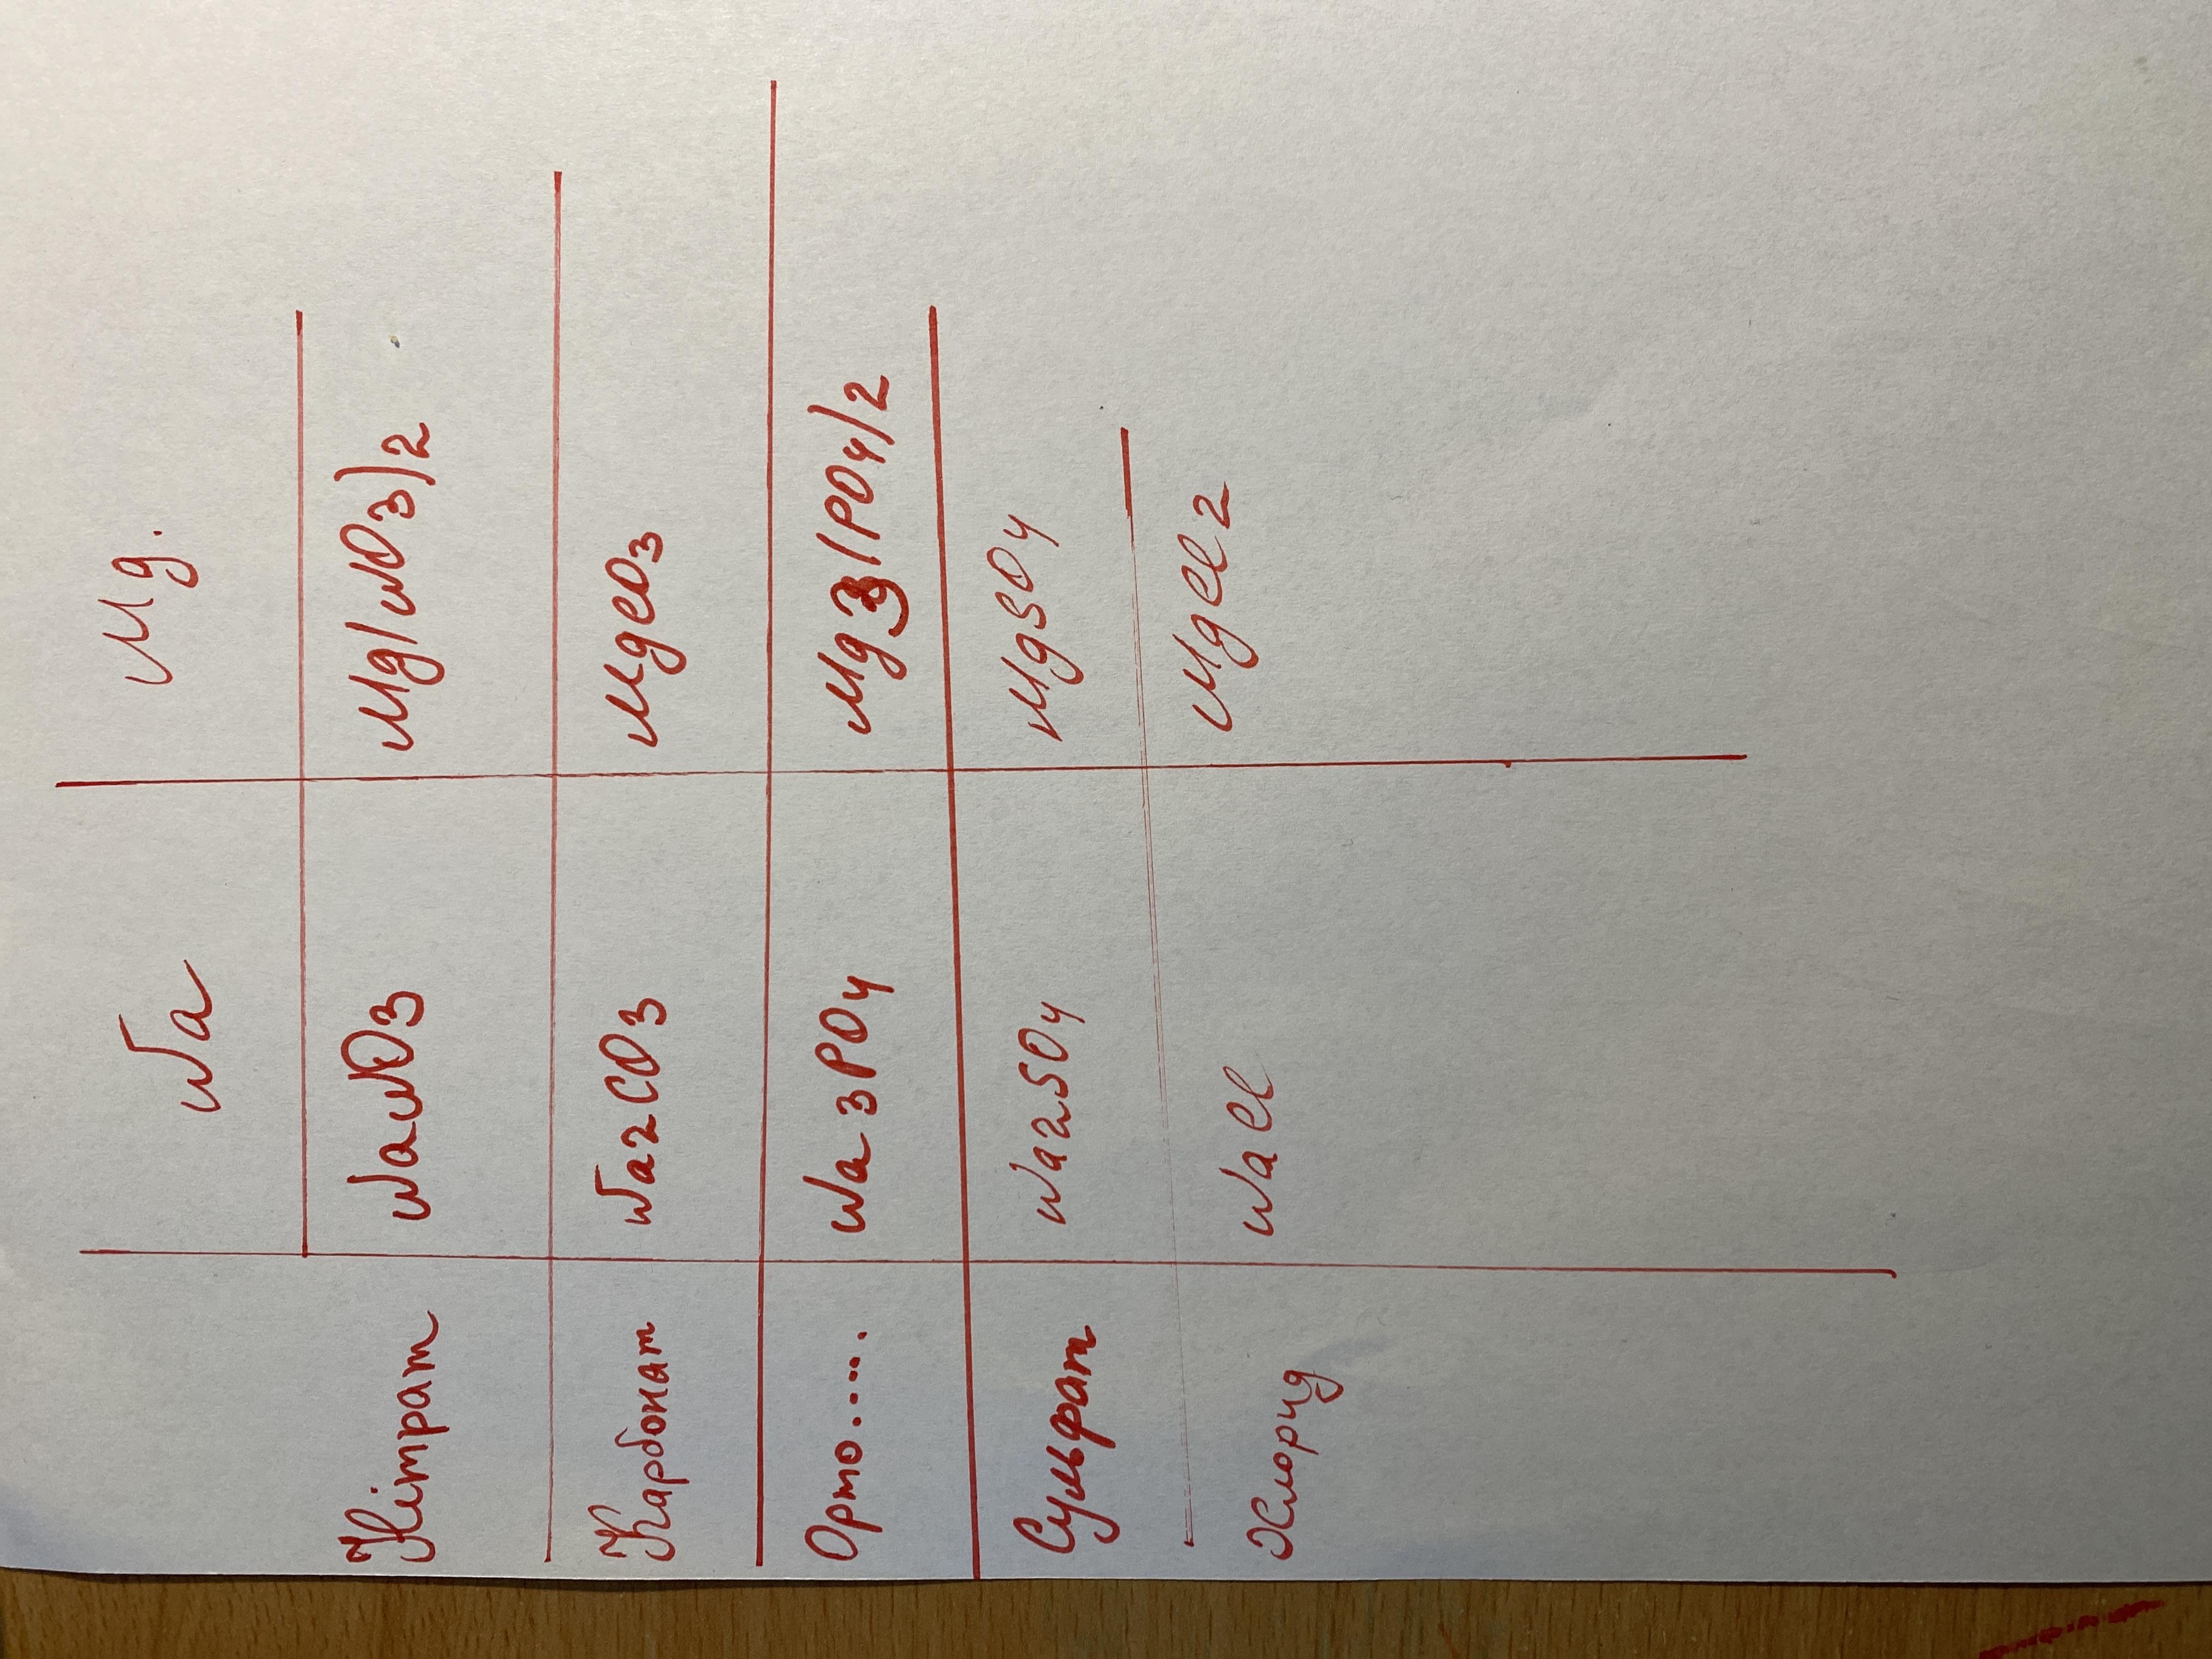 Na Mg.
Нітрат NaNO3 Mg(NO3)2
Карбонат Na2CO3 MgCO3
Орто..... Na3PO4 Mg3(PO4)2
Сульфат Na2SO4 MgSO4
Хлорид NaCl MgCl2